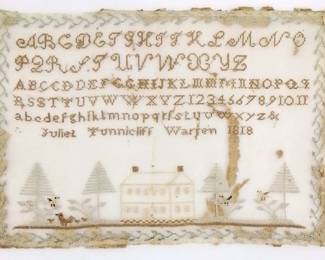 ABCDEFGHIJKLMNO
PQRSTUVWXYZ
ABCCDDEFGGHIJKLLMMNNOPQR
RSSTTUVWWXYZ1234567891011
abcdefghiklmnopqrstuvwxyz&
Juliet Tunnicliff Warren 1818